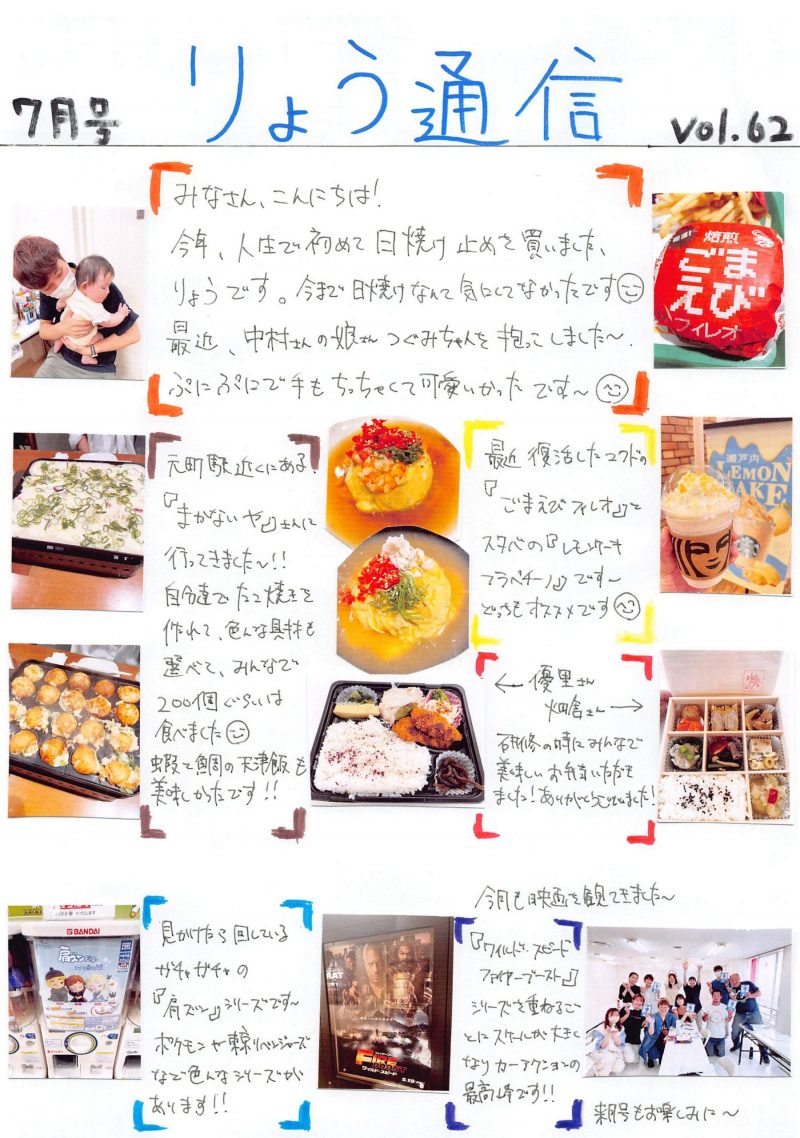 7月号
りょう通信
vol.62
みなさん、こんにちは!
今年、人生で初めて日焼け止めを買いました、
りょうです。今まで日焼けなんて気にしてなかったです
最近、中村さんの娘さんつぐみちゃんを抱っこしました〜.
ぷにぷにで手もちっちゃくて可愛いかったです〜
焙煎
ごま
えび
フィレオ
元町駅近くにある
『まかないや』さんに
行ってきました〜!!
自分達でたこ焼きを
作れて、色んな具材も
選べて、みんなで
200個ぐらいは
食べました
蝦と鯛の天津飯も
美味しかったです!!
最近復活したマクドの
『ごまえびフィレオ』と
スタバの『レモンケーキ
フラペチーノ』です〜
どっちもオススメです
瀬戸内
LEMON
CAKE
← 優里さん
畑倉さん →
研修の時にみんなで
美味しいお弁当いただき
ました!ありがとうございました!
BANDAI
肩ズンFig.
見かけたら回している
ガチャガチャの
『肩ズン』シリーズです〜
ポケモンや東京リベンジャーズ
など色んなシリーズが
あります!!
FIRE
ワイルド・スピード
5.19
今月も映画を観てきました〜
『ワイルド・スピード
ファイヤーブースト』
シリーズを重ねるご
とにスケールが大きく
なりカーアクションの
最高峰です!!
来月号もお楽しみに〜